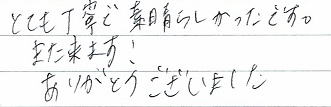 とても丁寧で素晴らしかったです。
また来ます!
ありがとうございました